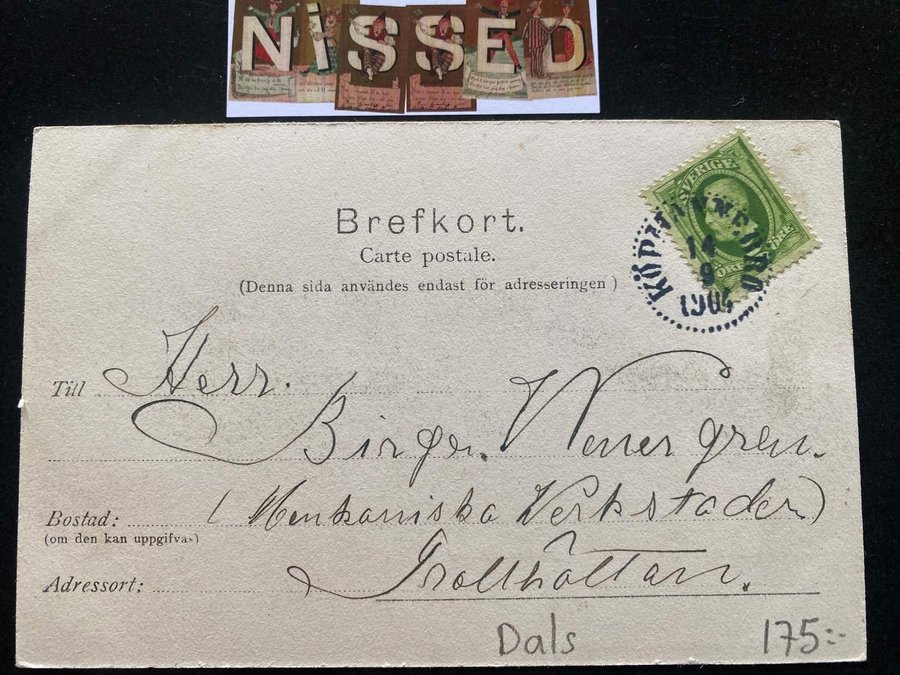 NISSED
SVERIGE
KÖPMANNEBRO
14
9
1904
ÖRE ÖRE
Brefkort.
Carte postale.
(Denna sida användes endast för adresseringen)
Till Herr.
Birger Wenergren.
Bostad: (Menkaniska Verkstaden)
(om den kan uppgifvas)
Adressort: Trollhättan.
Dals 175:-